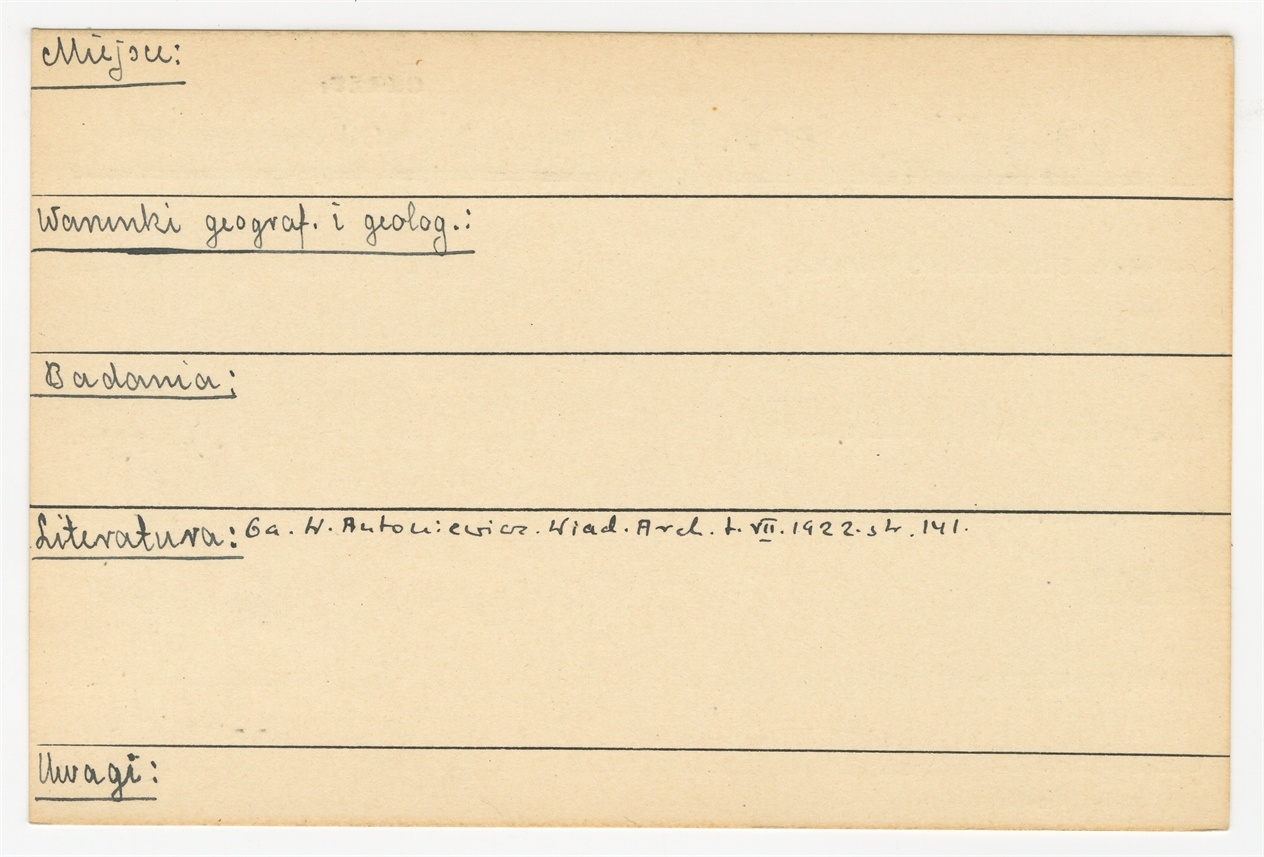 Miejsce:
Warunki geograf. i geolog.:
Badania:
Literatura: 6a. W. Antoniewicz. Wiad. Arch. t. VII. 1922. str. 141.
Uwagi: